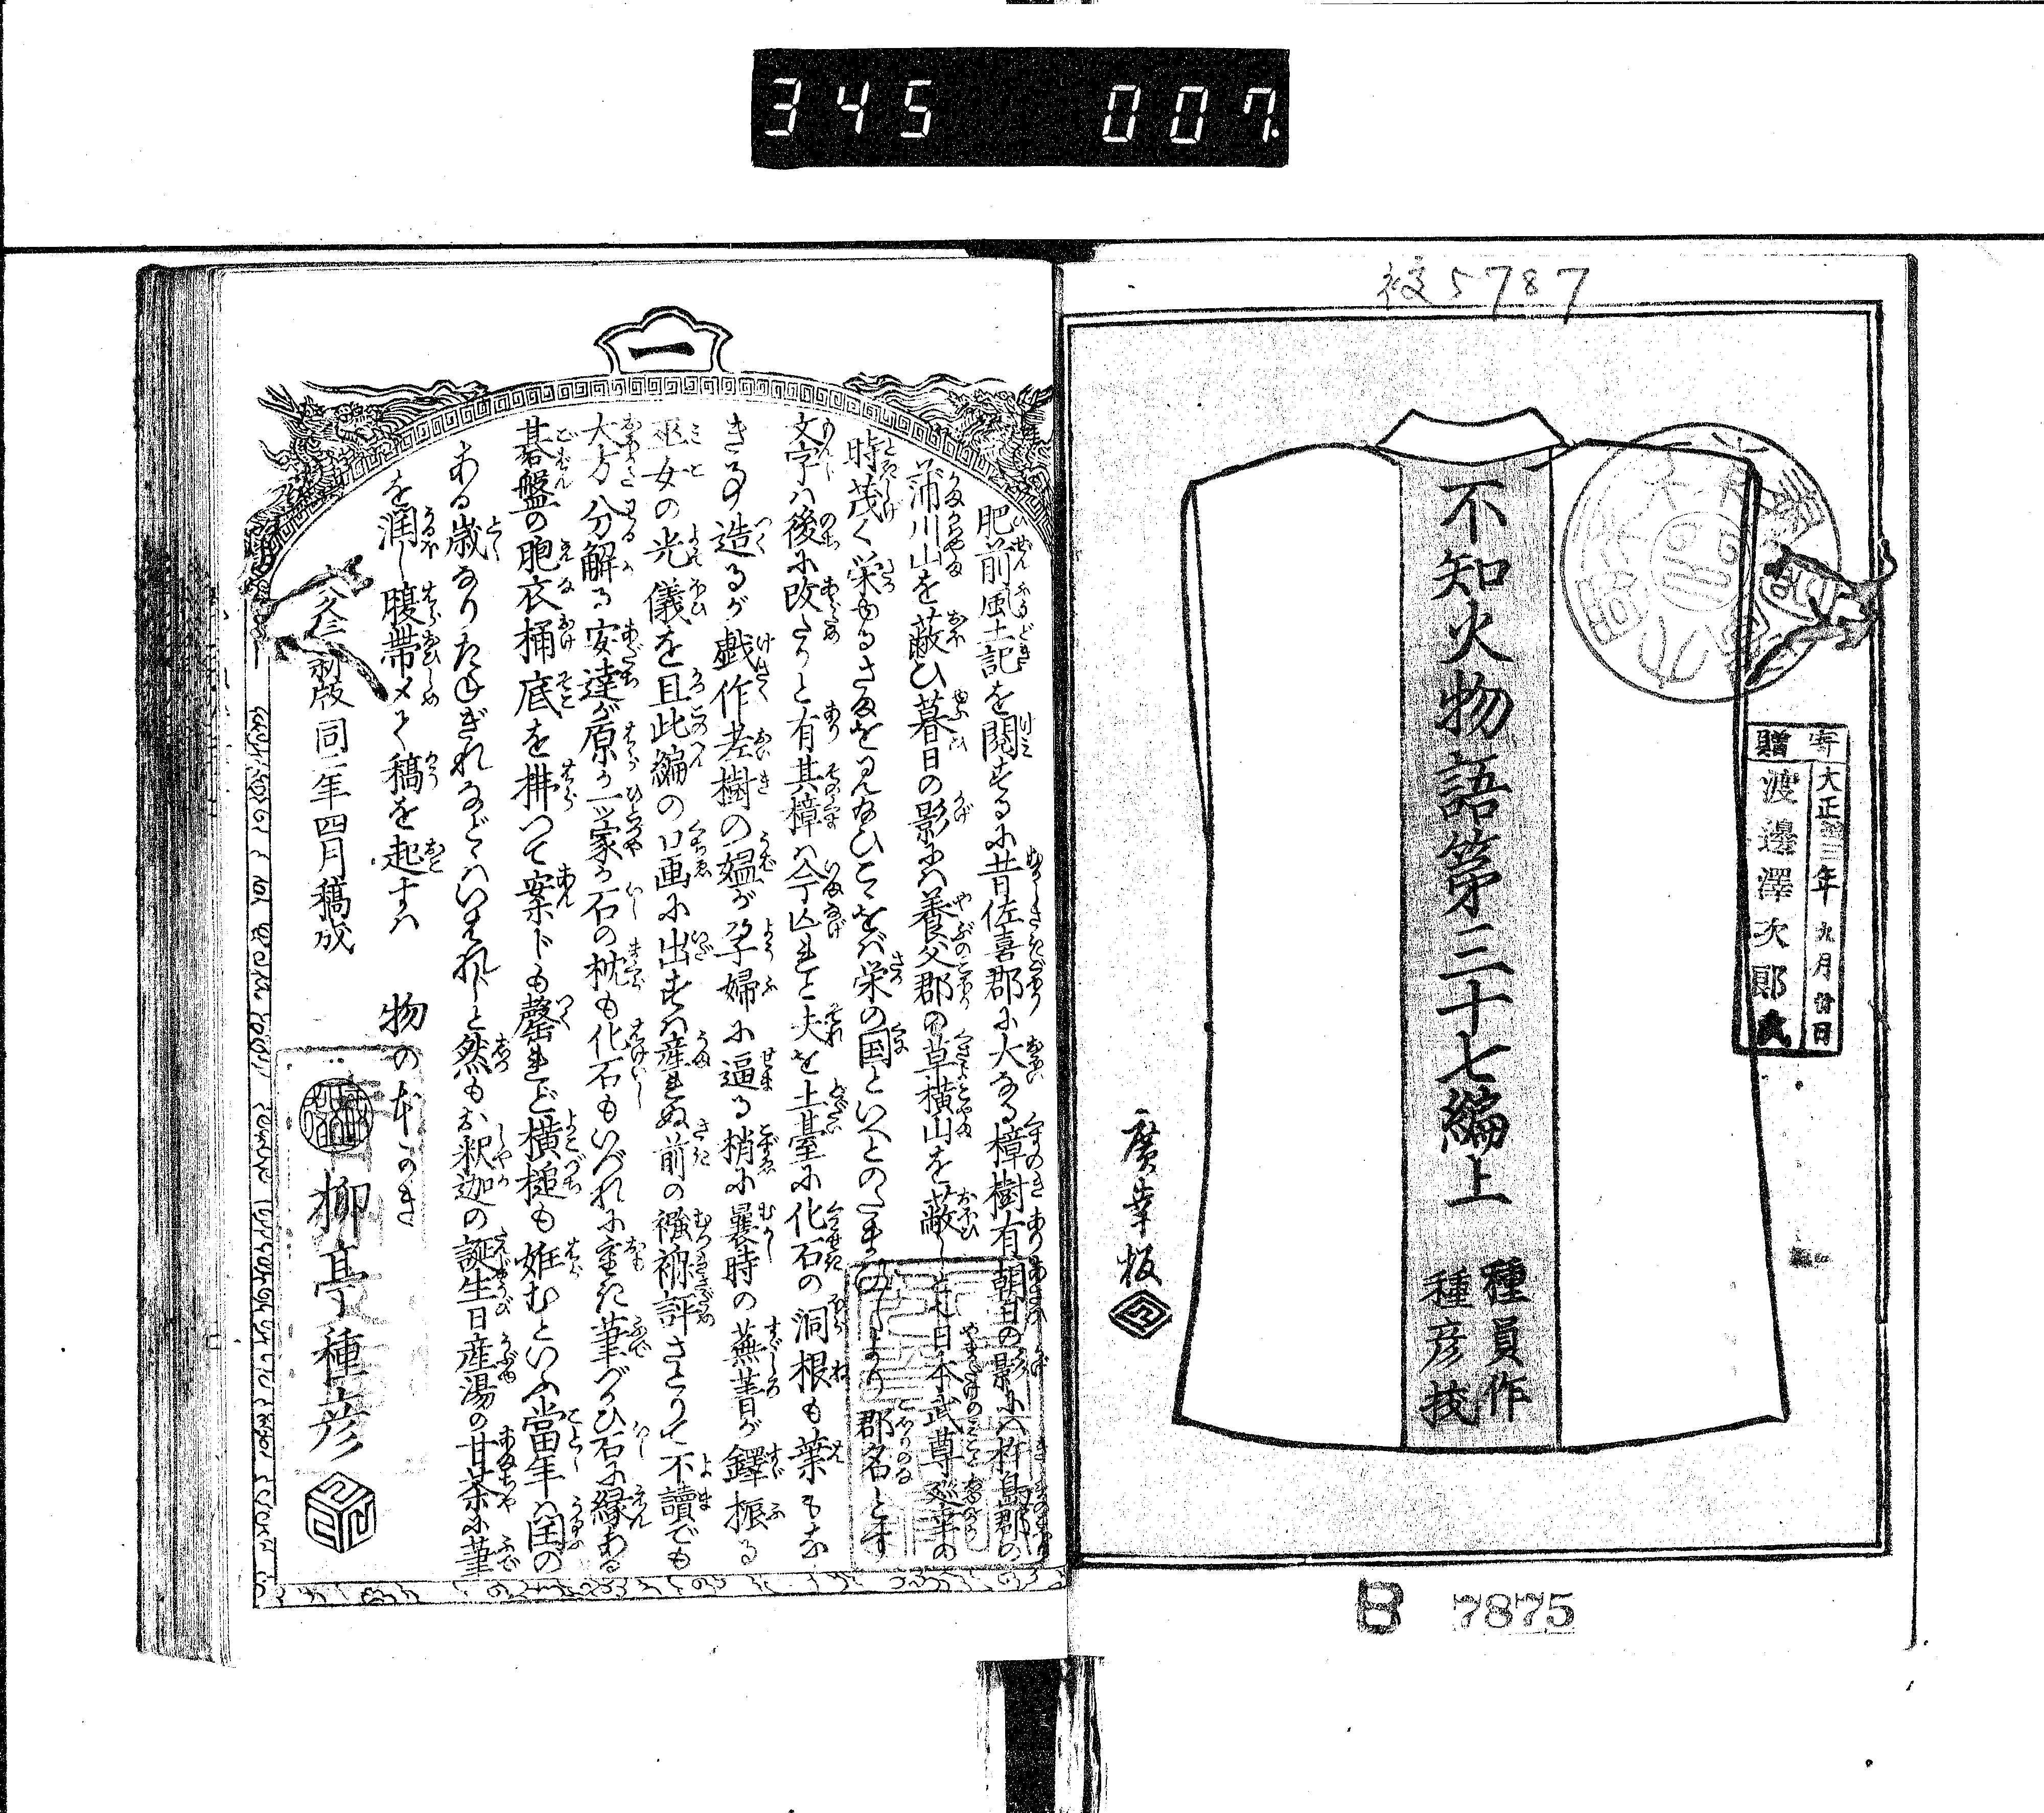 345 007
5787
不知火物語第三十七編上
種員作
種彦技
廣幸板
寄贈
大正三年九月廿日
渡邊澤次郎氏
B 7875
一
肥前風土記を閲するに昔佐喜郡に大なる樟樹有朝日の影には杵島郡の
蒲川山を蔽ひ暮日の影には養父郡の草横山を蔽しと也日本武尊巡幸の
時茂く栄ゆるさまを見給ひこゝをば栄の国といへとのたまひしより郡名とす
文字は後に改たりと有其樟は今亡れど夫を土臺に化石の洞根も葉もな
き事造るが戯作老樹の媼が孕婦に逼る梢に曩時の蕪菁が鐸振る
巫女の光儀を且此編の口画に出すは産れぬ前の襁褓許さとりて不讀でも
大方分解る安達が原か一ッ家か石の枕も化石もいづれに重き筆づかひ石に縁ある
碁盤の胞衣桶底を拂つて案ドも罄れど横槌も姙むといふ當年は閏の
ある歳なりたねぎれなどゝはいはれじと然もお釈迦の誕生日産湯の甘茶に筆
を潤し腹帯〆て稿を起すは 物の本かき
文久三新版 同二年四月稿成
柳亭種彦